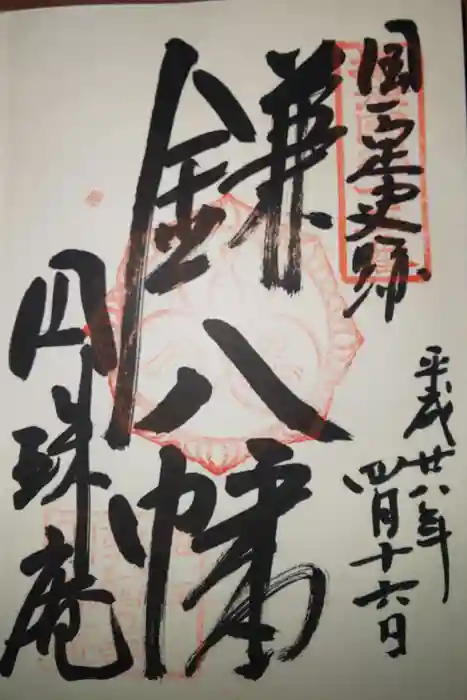 国一定史跡
鎌八幡
円珠庵
平成廿八年
四月十六日